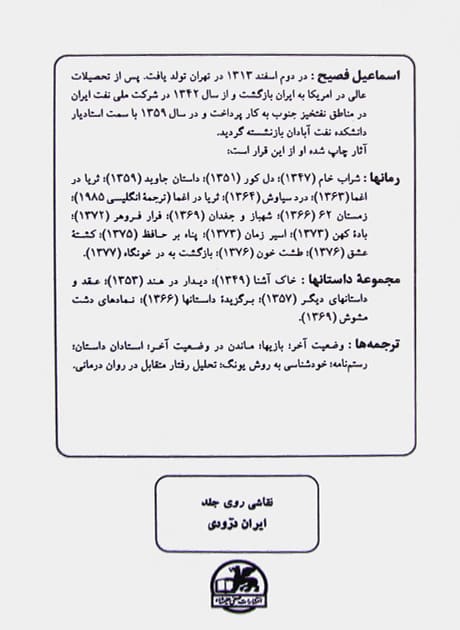 اسماعیل فصیح : در دوم اسفند ۱۳۱۳ در تهران تولد یافت. پس از تحصیلات
عالی در امریکا به ایران بازگشت و از سال ۱۳۴۲ در شرکت ملی نفت ایران
در مناطق نفتخیز جنوب به کار پرداخت و در سال ۱۳۵۹ با سمت استادیار
دانشکده نفت آبادان بازنشسته گردید.
آثار چاپ شده او از این قرار است:
رمانها : شراب خام (۱۳۴۷)؛ دل کور (۱۳۵۱)؛ داستان جاوید (۱۳۵۹)؛ ثریا در
اغما (۱۳۶۳)؛ درد سیاوش (۱۳۶۴)؛ ثریا در اغما (ترجمهٔ انگلیسی ۱۹۸۵)؛
زمستان ۶۲ (۱۳۶۶)؛ شهباز و جغدان (۱۳۶۹)؛ فرار فروهر (۱۳۷۲)؛
بادهٔ کهن (۱۳۷۳)؛ اسیر زمان (۱۳۷۳)؛ پناه بر حافظ (۱۳۷۵)؛ کشتهٔ
عشق (۱۳۷۶)؛ طشت خون (۱۳۷۶)؛ بازگشت به در خونگاه (۱۳۷۷).
مجموعهٔ داستانها : خاک آشنا (۱۳۴۹)؛ دیدار در هند (۱۳۵۳)؛ عقد و
داستانهای دیگر (۱۳۵۷)؛ برگزیدهٔ داستانها (۱۳۶۶)؛ نمادهای دشت
مشوش (۱۳۶۹).
ترجمه‌ها : وضعیت آخر؛ بازیها؛ ماندن در وضعیت آخر؛ استادان داستان؛
رستم‌نامه؛ خودشناسی به روش یونگ؛ تحلیل رفتار متقابل در روان درمانی.
نقاشی روی جلد
ایران درّودی